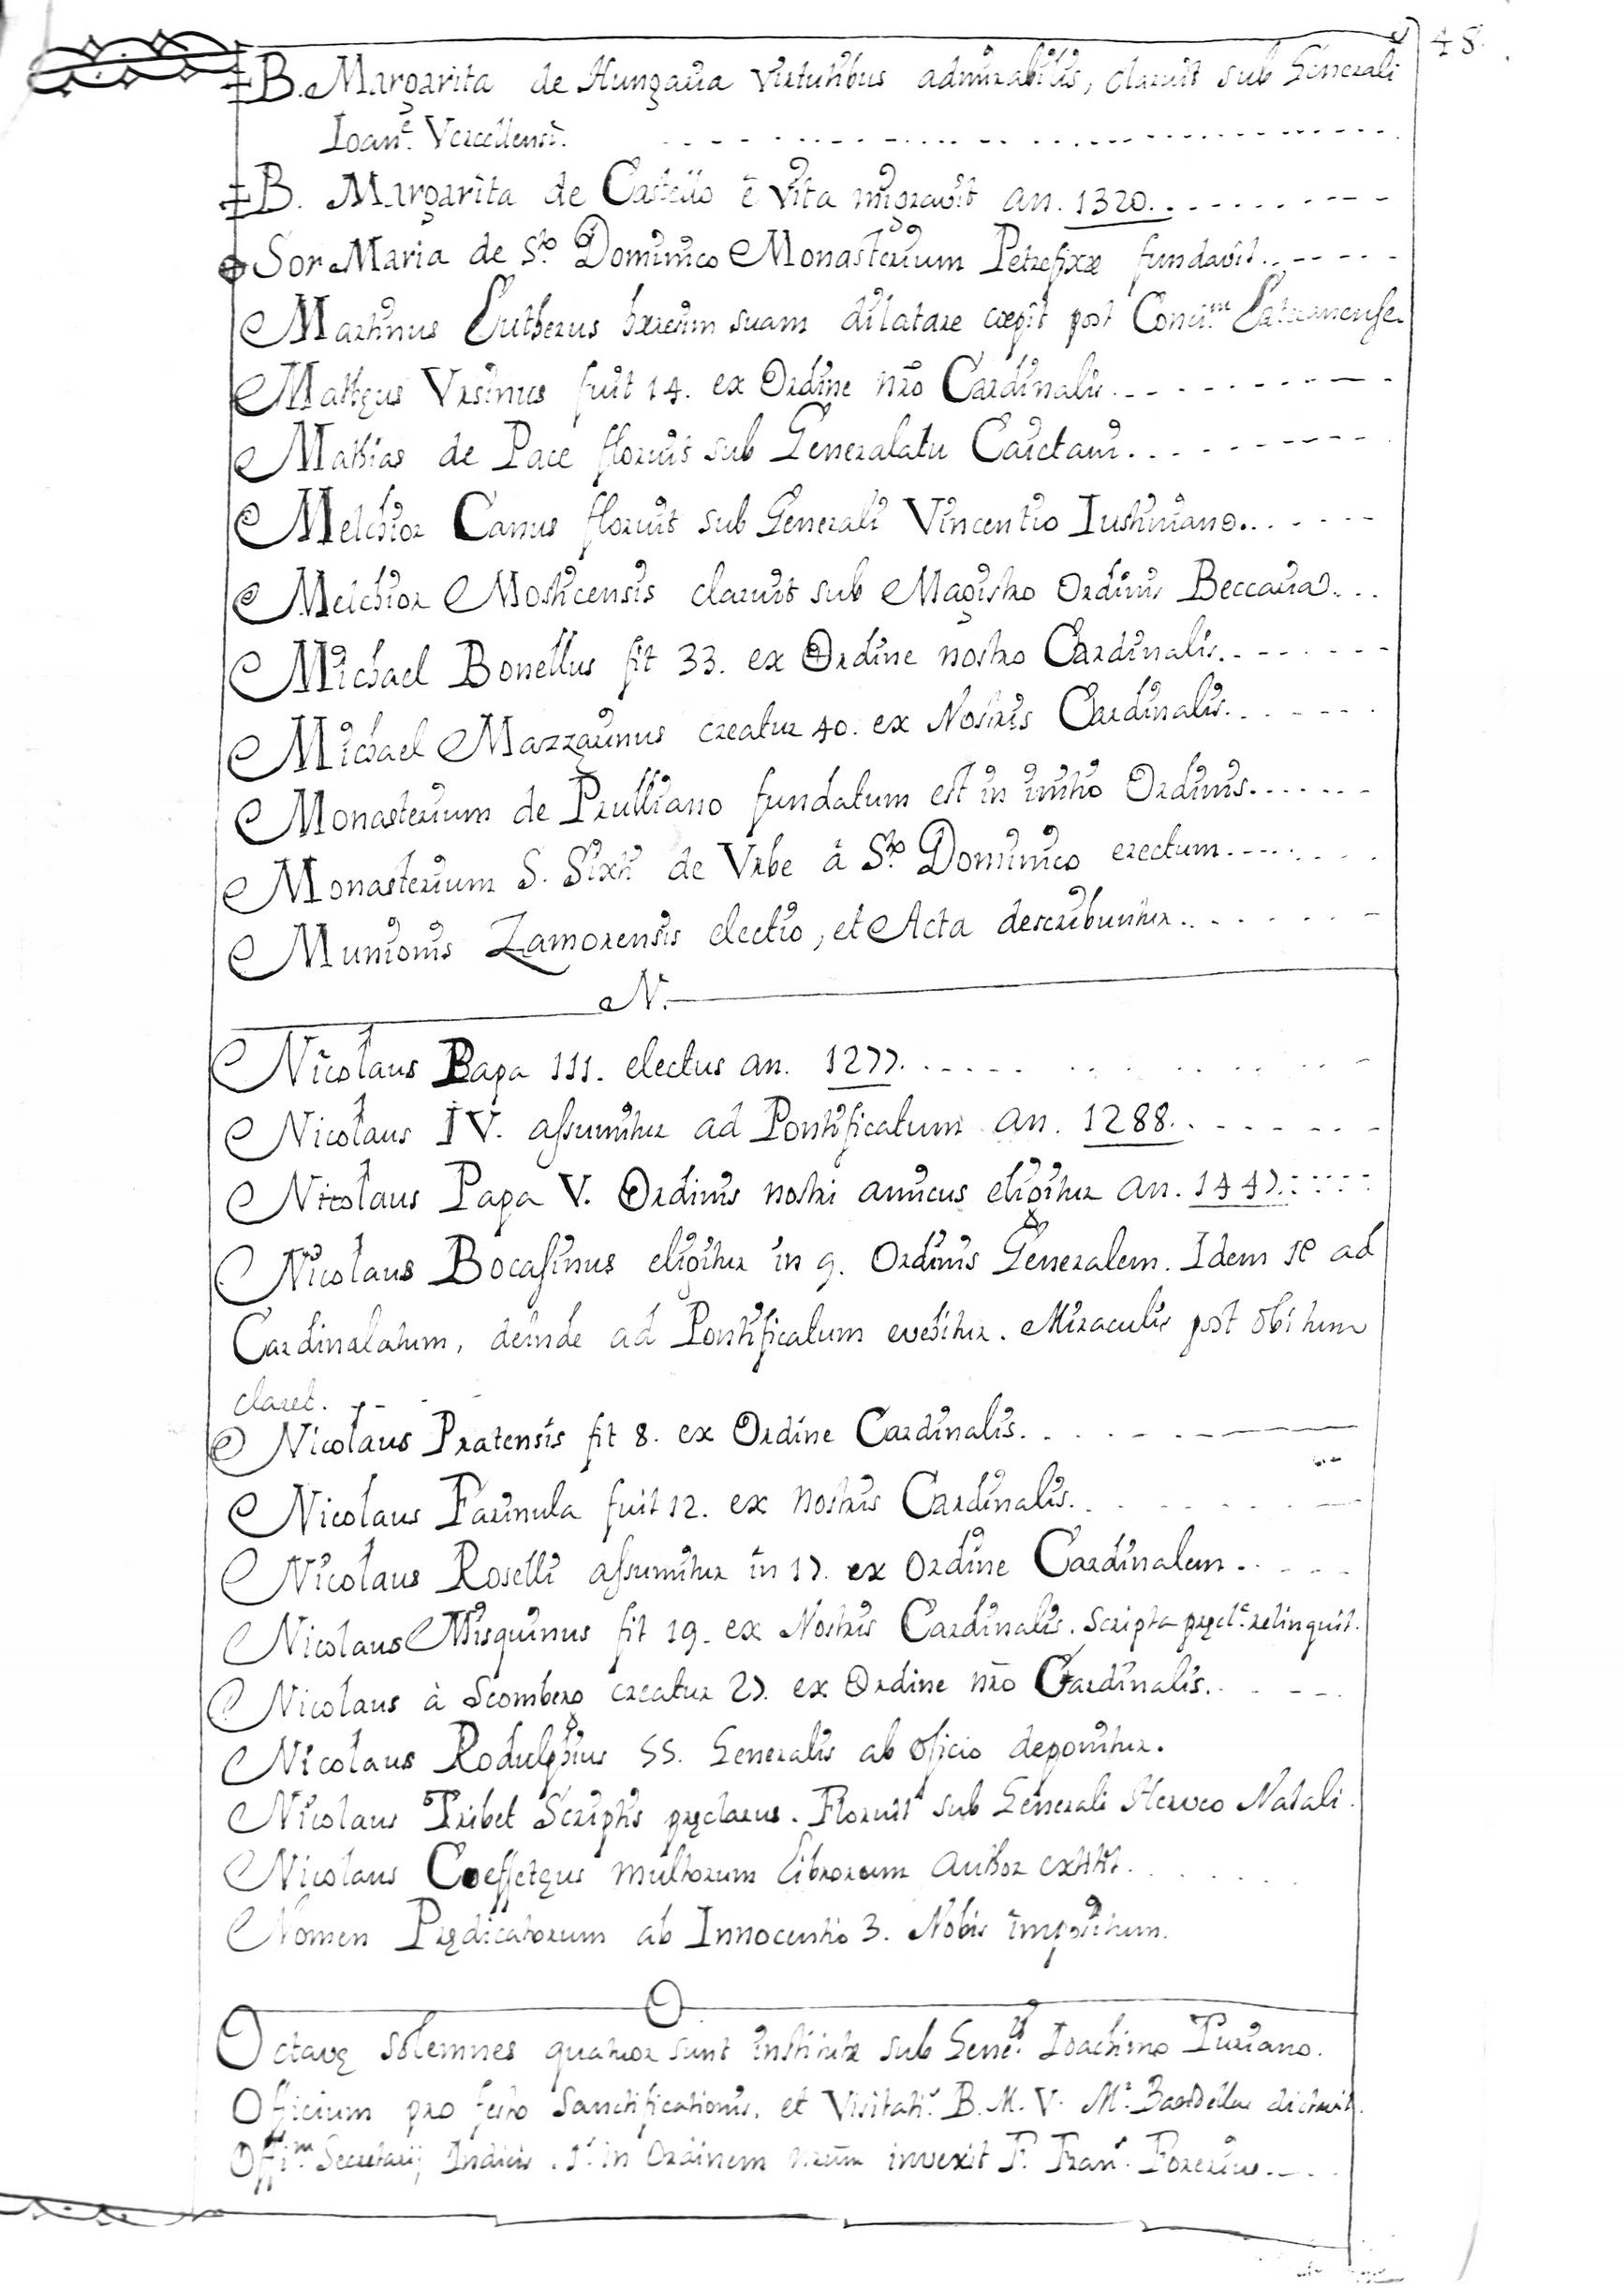 48.
B. Margarita de Hungaria virtutibus admirabilis, claruit sub Generali
Ioan.e Vercellensi.
B. Margarita de Castello è vita migravit an. 1320.
Sor Maria de S.to Dominico Monasterium Petrefixæ fundavit.
Martinus Lutherus hæresim suam dilatare cœpit post Conci.m Lateranense.
Mattheus Ursinus fuit 14. ex Ordine nr̃o Cardinalis.
Mathias de Pace floruit sub Generalatu Caietani.
Melchior Canus floruit sub Generali Vincentio Iustiniano.
Melchior Mosticensis claruit sub Magistro Ordinis Beccaria.
Michael Bonellus fit 33. ex Ordine nostro Cardinalis.
Michael Mazzarinus creatur 40. ex Nostris Cardinalis.
Monasterium de Prulliano fundatum est in initio Ordinis.
Monasterium S. Sixti de Urbe à S.to Dominico erectum.
Munionis Zamorensis electio, et Acta describuntur.
N.
Nicolaus Papa III. electus an. 1277.
Nicolaus IV. assumitur ad Pontificatum an. 1288.
Nicolaus Papa V. Ordinis nostri amicus eligitur an. 1447.
Nicolaus Bocasinus eligitur in 9. Ordinis Generalem. Idem se ad
Cardinalatum, deinde ad Pontificatum evehitur. Miraculis post obitum
claret.
Nicolaus Pratensis fit 8. ex Ordine Cardinalis.
Nicolaus Farinula fuit 12. ex nostris Cardinalis.
Nicolaus Roselli assumitur in 17. ex Ordine Cardinalem.
Nicolaus Misquinus fit 19. ex Nostris Cardinalis. Scripta pręcl.a relinquit.
Nicolaus à Scombero creatur 27. ex Ordine nr̃o Cardinalis.
Nicolaus Rodulphius 55. Generalis ab oficio deponitur.
Nicolaus Tribet Scriptis pręclarus. Floruit sub Generali Herveo Natali.
Nicolaus Coeffetęus multorum Librorum Author extitit.
Nomen Prędicatorum ab Innocentio 3. Nobis impositum.
O
Octavę solemnes quatuor sunt institutæ sub Gene.li Ioachimo Turiano.
Officium pro festo Sanctificationis, et Visitati.s B. M. V. M.s Bandellus dictavit.
Offi.m Secretarij Indicis in Ordinem nrũm invexit F. Fran.s Forerius.